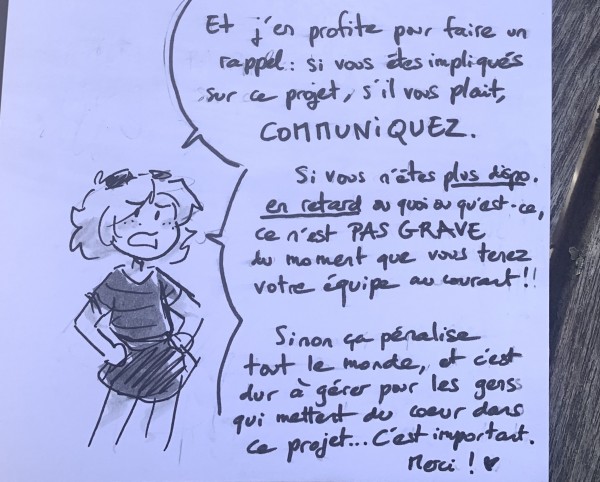 Et j'en profite pour faire un
rappel : si vous êtes impliqués
sur ce projet, s'il vous plait,
COMMUNIQUEZ.
Si vous n'êtes plus dispo.
en retard ou quoi ou qu'est-ce,
ce n'est PAS GRAVE
du moment que vous tenez
votre équipe au courant !!
Sinon ça pénalise
tout le monde, et c'est
dur à gérer pour les gens
qui mettent du coeur dans
ce projet... C'est important.
Merci ! ♥